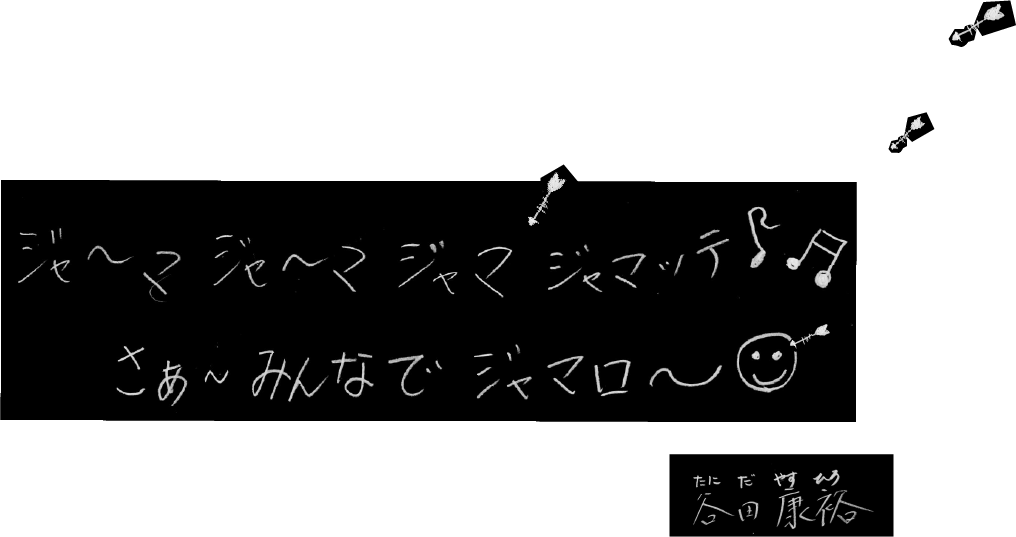 ジャ〜マ ジャ〜マ ジャマ ジャマッテ
さぁ〜みんなで ジャマロ〜
たに だ やす ひろ
谷田康裕